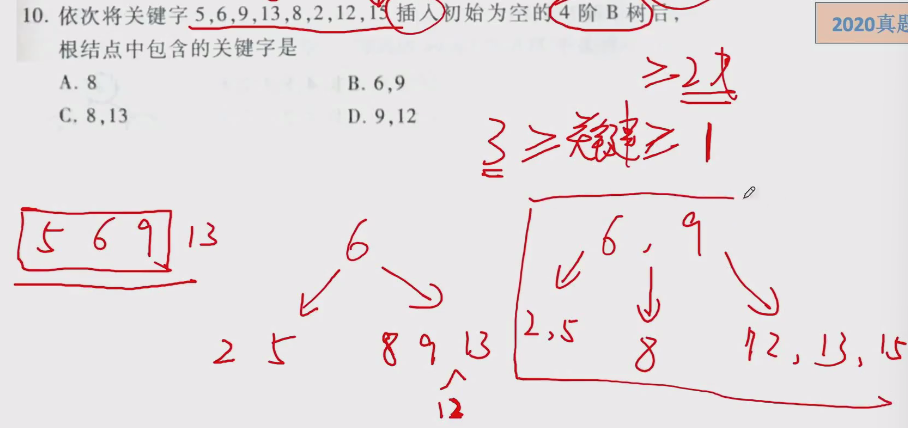 10. 依次将关键字 5,6,9,13,8,2,12,15 插入初始为空的 4 阶 B 树后,
2020真题
根结点中包含的关键字是
A. 8
B. 6,9
C. 8,13
D. 9,12
≥ 2
3 ≥ 关键 ≥ 1
5 6 9 13
6
6 , 9
2 5
8 9 13
2,5
8
12, 13, 15
12